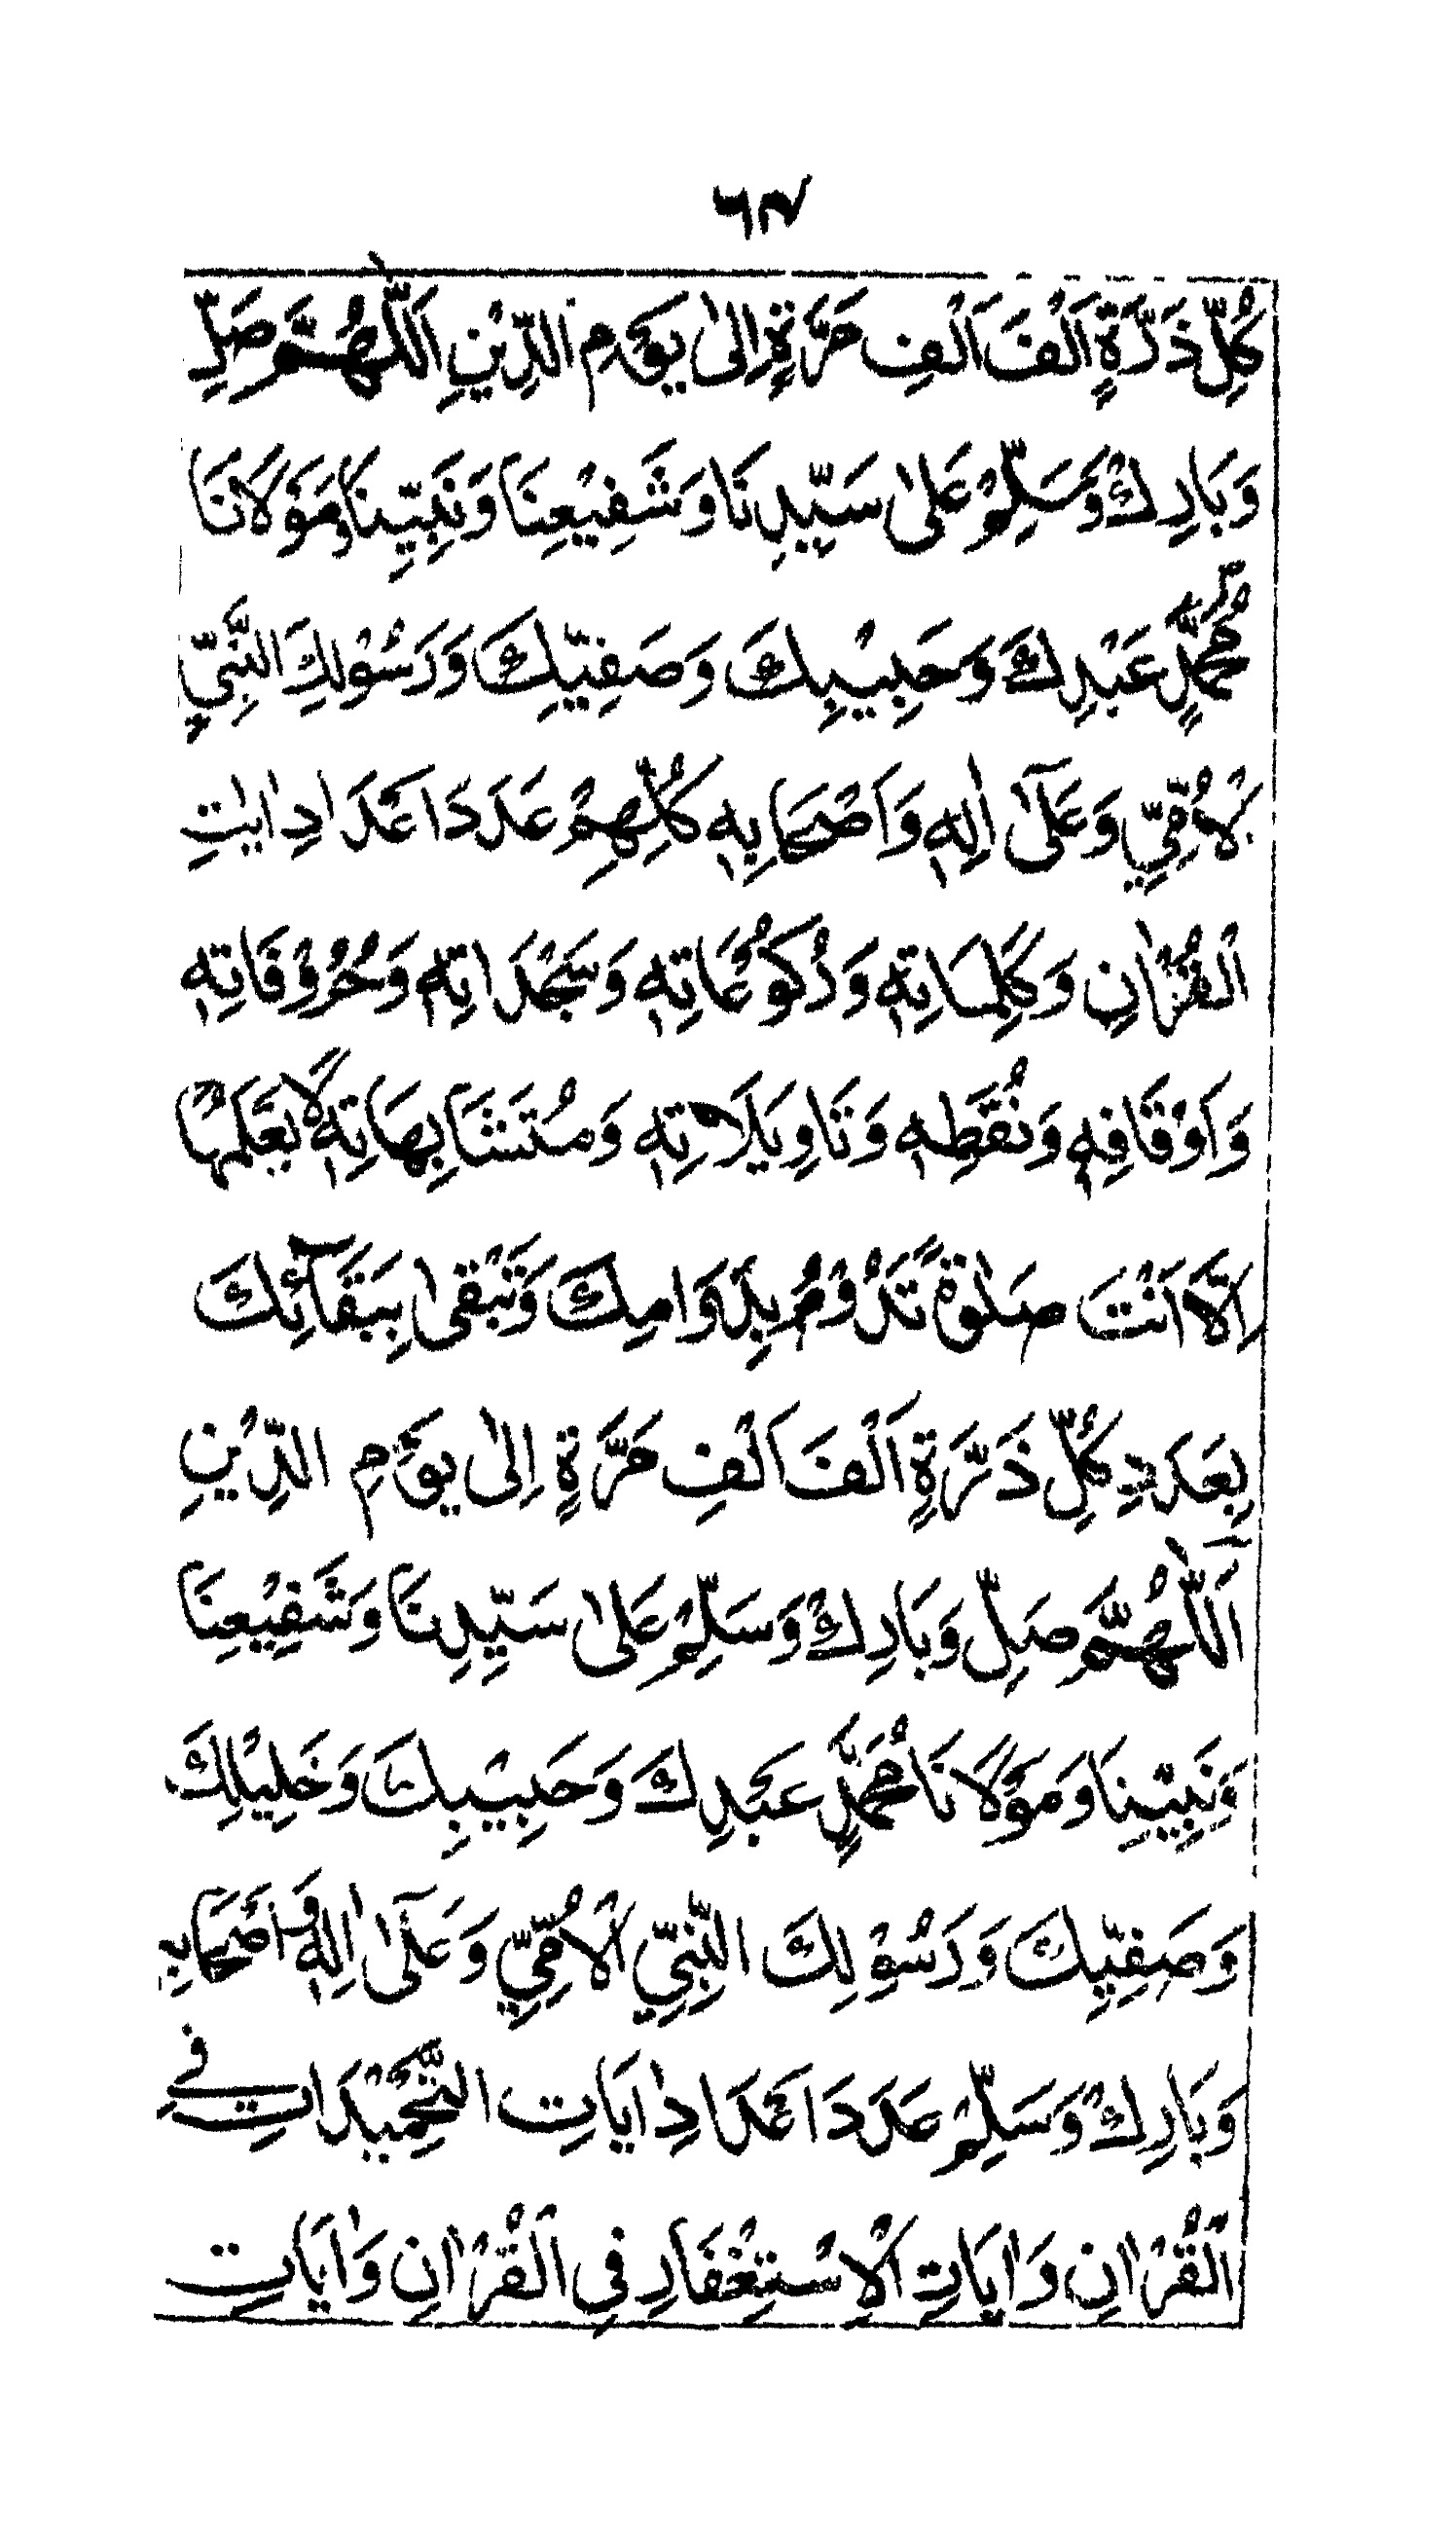 ٦٧
كُلِّ ذَرَّةٍ اَلْفَ اَلْفِ مَرَّةٍ اِلىٰ يَوْمِ الدِّيْنِ اَللّٰهُمَّ صَلِّ
وَبَارِكْ وَسَلِّمْ عَلىٰ سَيِّدِنَا وَشَفِيْعِنَا وَنَبِيِّنَا وَمَوْلَانَا
مُحَمَّدٍ عَبْدِكَ وَحَبِيْبِكَ وَصَفِيِّكَ وَرَسُوْلِكَ النَّبِيِّ
الْاُمِّيِّ وَعَلىٰٓ اٰلِهٖ وَاَصْحَابِهٖ كُلِّهِمْ عَدَدَ اَعْدَادِ اٰيٰتِ
الْقُرْاٰنِ وَكَلِمَاتِهٖ وَرُكُوْعَاتِهٖ وَسَجْدَاتِهٖ وَحُرُوْفَاتِهٖ
وَاَوْقَافِهٖ وَنُقَطِهٖ وَتَاوِيَلَاتِهٖ وَمُتَشَابِهَاتِهٖ لَا يَعْلَمُهَا
اِلَّا اَنْتَ صَلٰوةً تَدُوْمُ بِدَوَامِكَ وَتَبْقىٰ بِبَقَآئِكَ
بِعَدَدِ كُلِّ ذَرَّةٍ اَلْفَ اَلْفِ مَرَّةٍ اِلىٰ يَوْمِ الدِّيْنِ
اَللّٰهُمَّ صَلِّ وَبَارِكْ وَسَلِّمْ عَلىٰ سَيِّدِنَا وَشَفِيْعِنَا
وَنَبِيِّنَا وَمَوْلَانَا مُحَمَّدٍ عَبْدِكَ وَحَبِيْبِكَ وَخَلِيْلِكَ
وَصَفِيِّكَ وَرَسُوْلِكَ النَّبِيِّ الْاُمِّيِّ وَعَلىٰٓ اٰلِهٖ وَاَصْحَابِهٖ
وَبَارِكْ وَسَلِّمْ عَدَدَ اَعْدَادِ اٰيَاتِ التَّحْمِيْدَاتِ فِي
الْقُرْاٰنِ وَاٰيَاتِ الْاِسْتِغْفَارِ فِي الْقُرْاٰنِ وَاٰيَاتِ